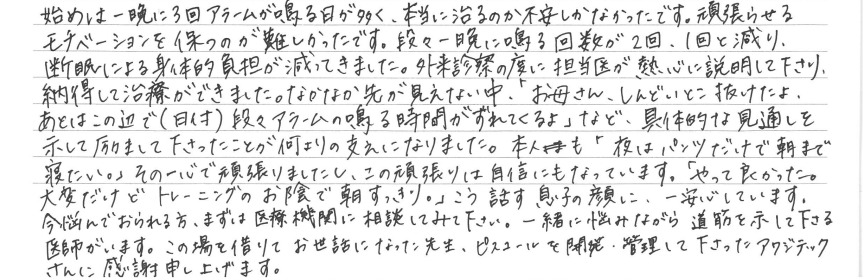 始めは一晩に3回アラームが鳴る日が多く、本当に治るのか不安しかなかったです。頑張らせる
モチベーションを保つのが難しかったです。段々一晩に鳴る回数が2回、1回と減り、
断眠による身体的負担が減ってきました。外来診察の度に担当医が熱心に説明して下さり、
納得して治療ができました。なかなか先が見えない中、「お母さん、しんどいとこ抜けたよ、
あとはこの辺で(日付)段々アラームの鳴る時間がずれてくるよ」など、具体的な見通しを
示して励まして下さったことが何よりの支えになりました。本人も「夜はパンツだけで朝まで
寝たい。」その一心で頑張りましたし、この頑張りは自信にもなっています。「やって良かった。
大変だけどトレーニングのお陰で朝すっきり。」こう話す息子の顔に、一安心しています。
今悩んでおられる方、まずは医療機関に相談してみて下さい。一緒に悩みながら道筋を示して下さる
医師がいます。この場を借りてお世話になった先生、ピスコールを開発・管理して下さったアワジテック
さんに感謝申し上げます。